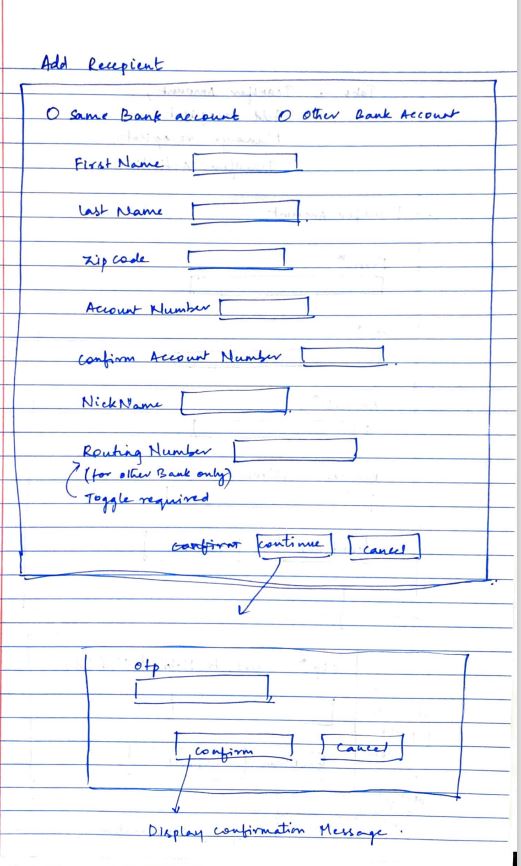 Add Recepient
O Same Bank account O Other Bank Account
First Name
Last Name
Zip code
Account Number
Confirm Account Number
NickName
Routing Number
(for other Bank only)
Toggle required
confirm continue cancel
otp
confirm cancel
Display confirmation Message.